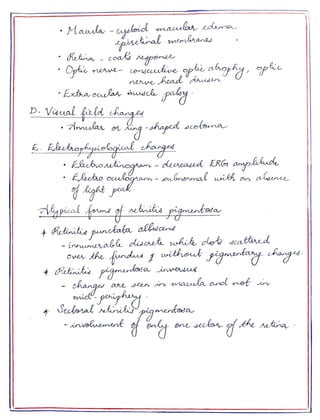 • Macula - cystoid macular edema
epiretinal membranes
• Retina - coat's response
• Optic nerve - consecutive optic atrophy, optic
nerve head drusen
• Extra ocular muscle palsy.
D. Visual field changes
• Annular or ring-shaped scotoma
E. Electrophysiological changes
• Electroretinogram - decreased ERG amplitude
• Electro oculogram - subnormal with an absence
of light peak
Atypical forms of retinitis pigmentosa
* Retinitis punctata albescens
- innumerable discrete white dots scattered
over the fundus & without pigmentary changes.
* Retinitis pigmentosa inversus
- changes are seen in macula and not in
mid-periphery.
* Sectoral retinitis pigmentosa
- involvement of only one sector of the retina.